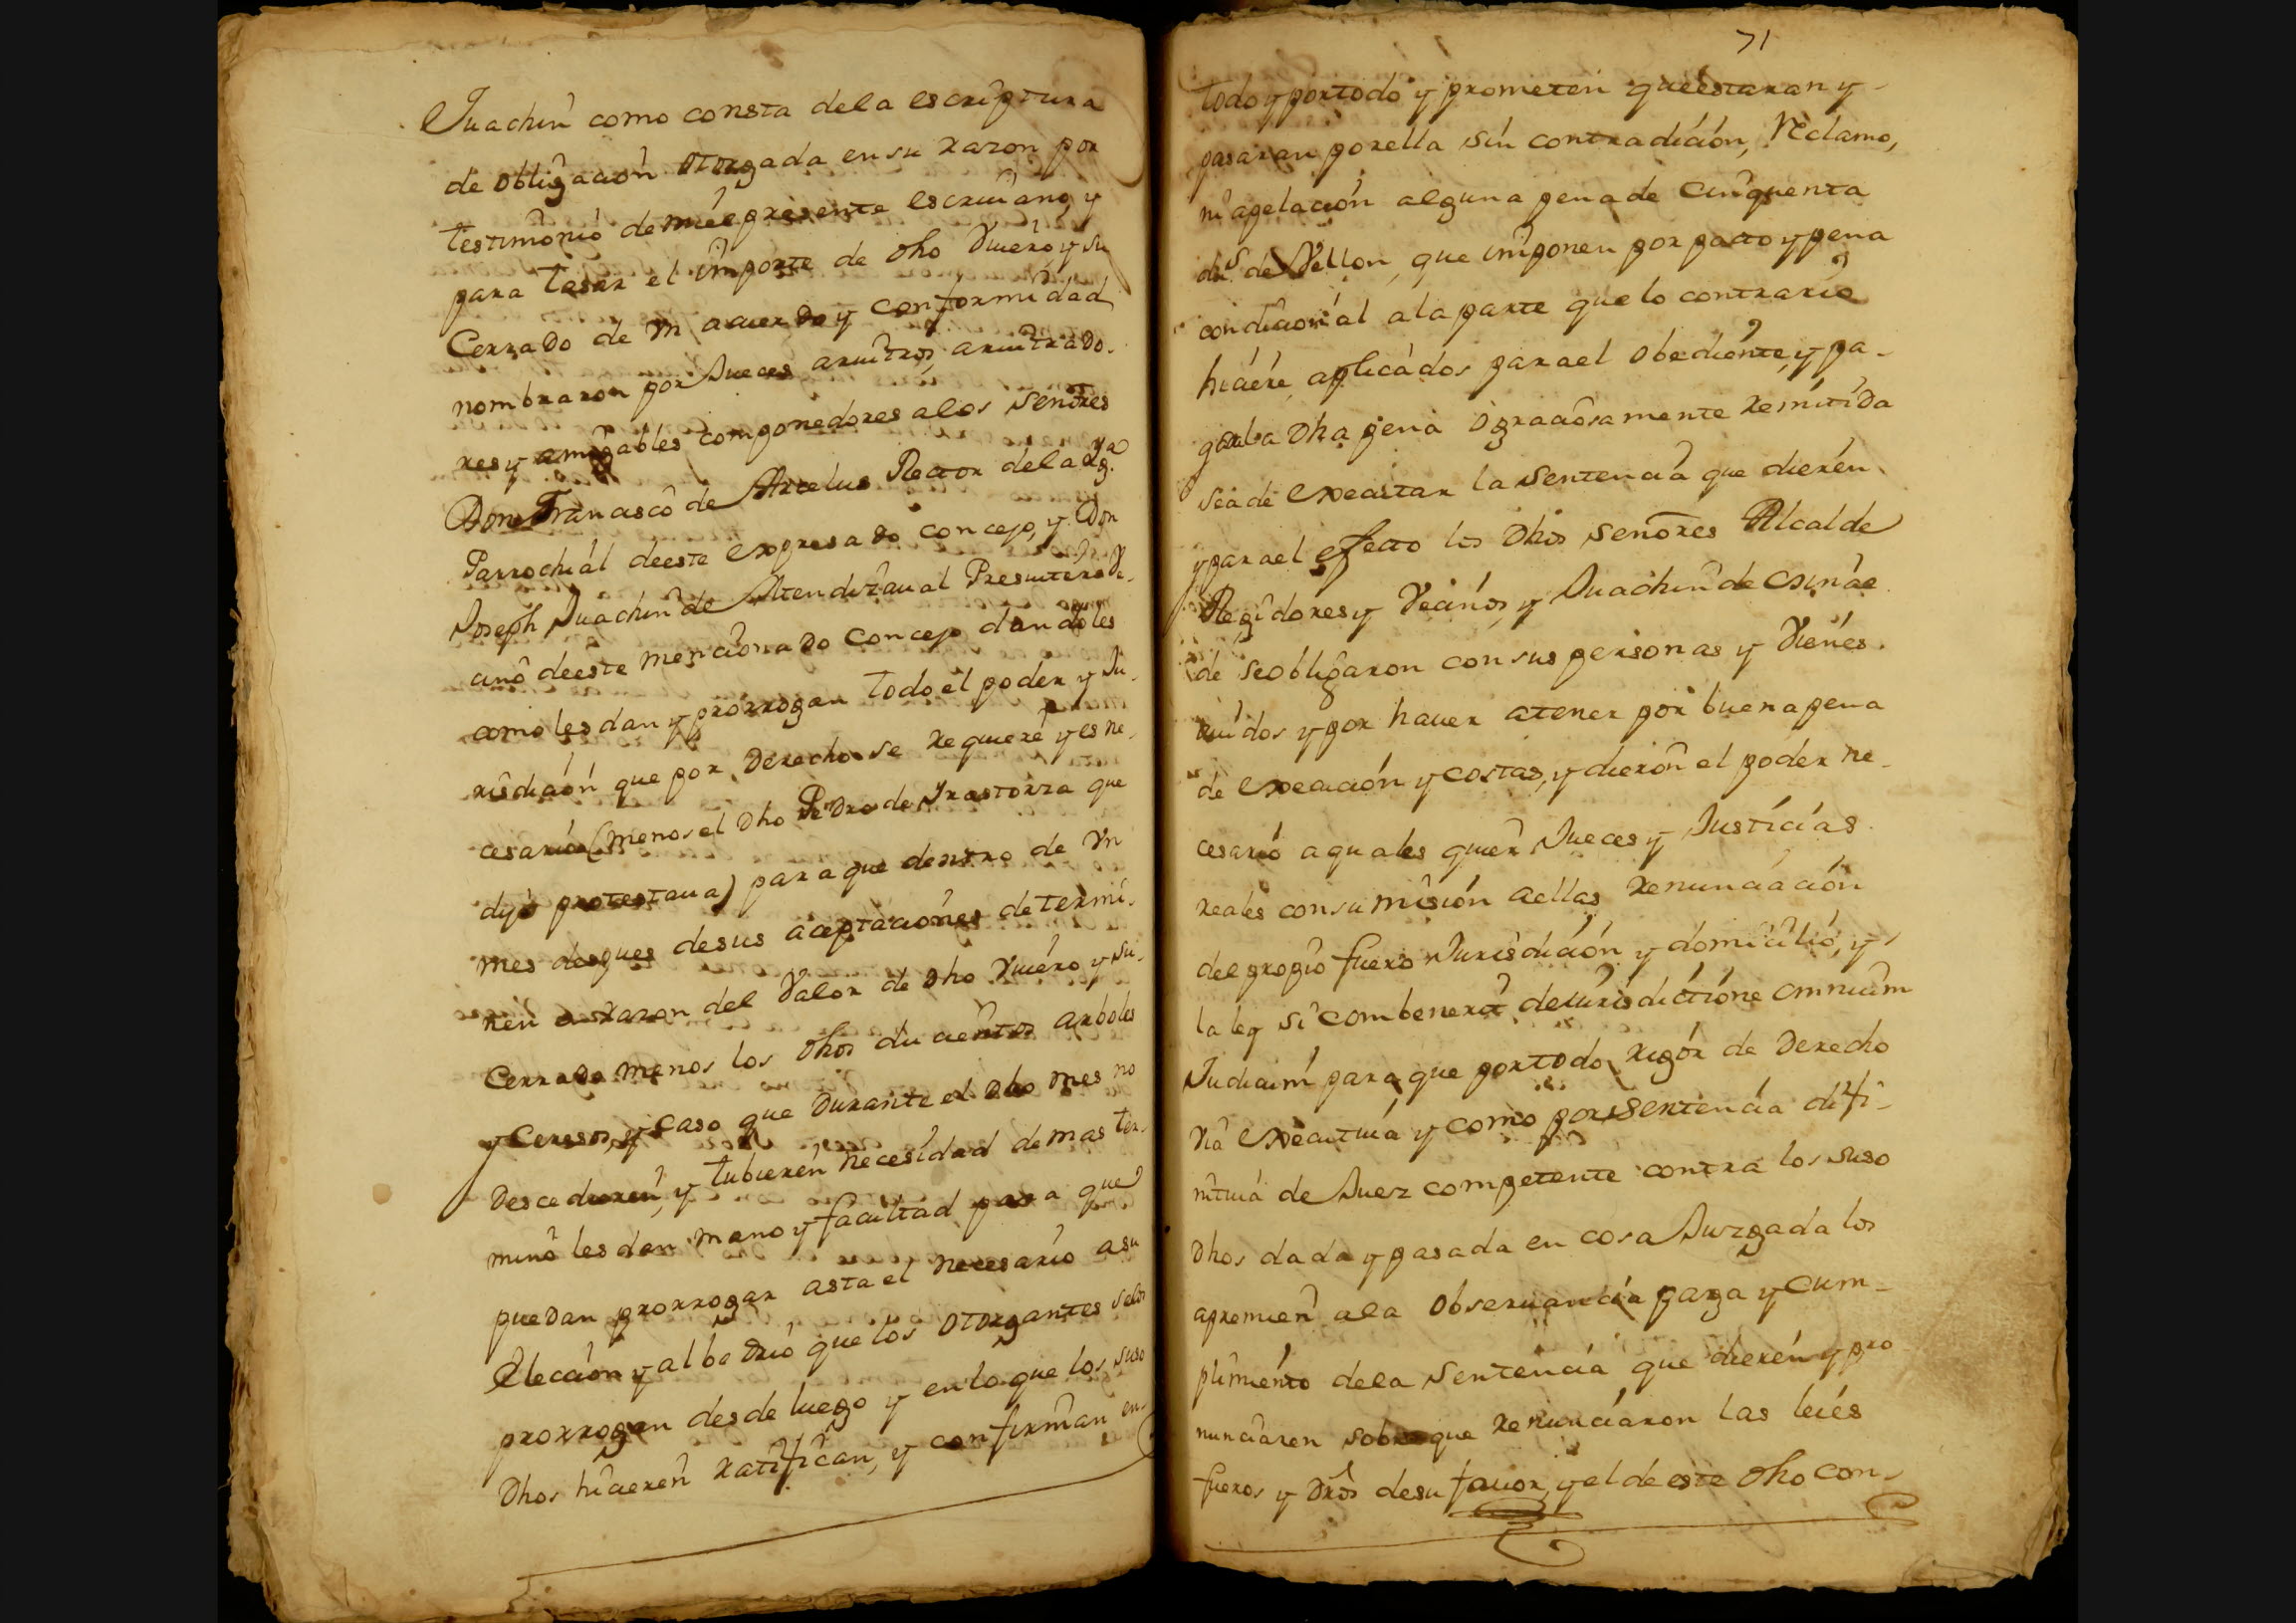 Juachin como consta dela escriptura
de obligacion otorgada en su razon por
testimonio de mi el presente escriuano, y
para tasar el importe de dho Viuero, y su
Cerrado de vn acuerdo y conformidad
nombraron por Jueces aruitros, aruitrado-
res y amigables componedores alos señores
Don Francisco de Arcelus Rector dela Yg.ª
Parrochial deeste expresado concejo, y Don
Joseph Juachin de Atendizaual Presuitero Ve-
cino deeste mencionado concejo dandoles
como les dan y prorrogan todo el poder y Ju-
risdicion que por derecho se requiere y es ne-
cesario (menos el dho Pedro de Yrastorza que
dijo protestaua) para que dentro de vn
mes despues desus aceptaciones determi-
nen en razon del Valor de dho Viuero y su
Cerrado menos los dhos ducientos arboles
y Cerezos, y caso que durante el dho mes no
descedieren, y tubieren necesidad demas ter-
mino les dan mano y facultad para que
puedan prorrogar asta el necesario a su
Eleccion y albedrio que los otorgantes selos
prorrogan desde luego y en lo que los suso
dhos hicieren ratifican, y confirman en-
71
todo y portodo y prometen queestaran y
pasaran porella sin contradicion, Reclamo,
ni apelacion alguna pena de cinquenta
du.s de Vellon que imponen por pacto y pena
condicional ala parte que lo contrario
hiciere, aplicados parael obediente, y pa-
gada dha pena ograciosamente remitida
seade executar la sentencia que dieren
y parael efecto los dhos señores Alcalde
Regidores y Vecinos, y Juachin de Osinal-
de seobligaron con sus personas y Vienes
auidos y por hauer atener por buena pena
de execucion y costas, y dieron el poder ne-
cesario aquales quier Jueces y Justicias
reales consumision aellas renunciacion
del propio fuero Jurisdicion y domicilio, y
la ley si combenerit de iurisdictione omnium
Judicum para que portodo rigor de derecho
Via executiua y como por sentencia difi-
nitiua de Juez competente contra los suso
dhos dada y pasada en cosa Juzgada los
apremien ala obseruancia paga y cum-
plimiento dela sentencia que dieren y pro
nunciaren sobre que renunciaron las leies
fueros y dros desu fauor, y el de este dho con-